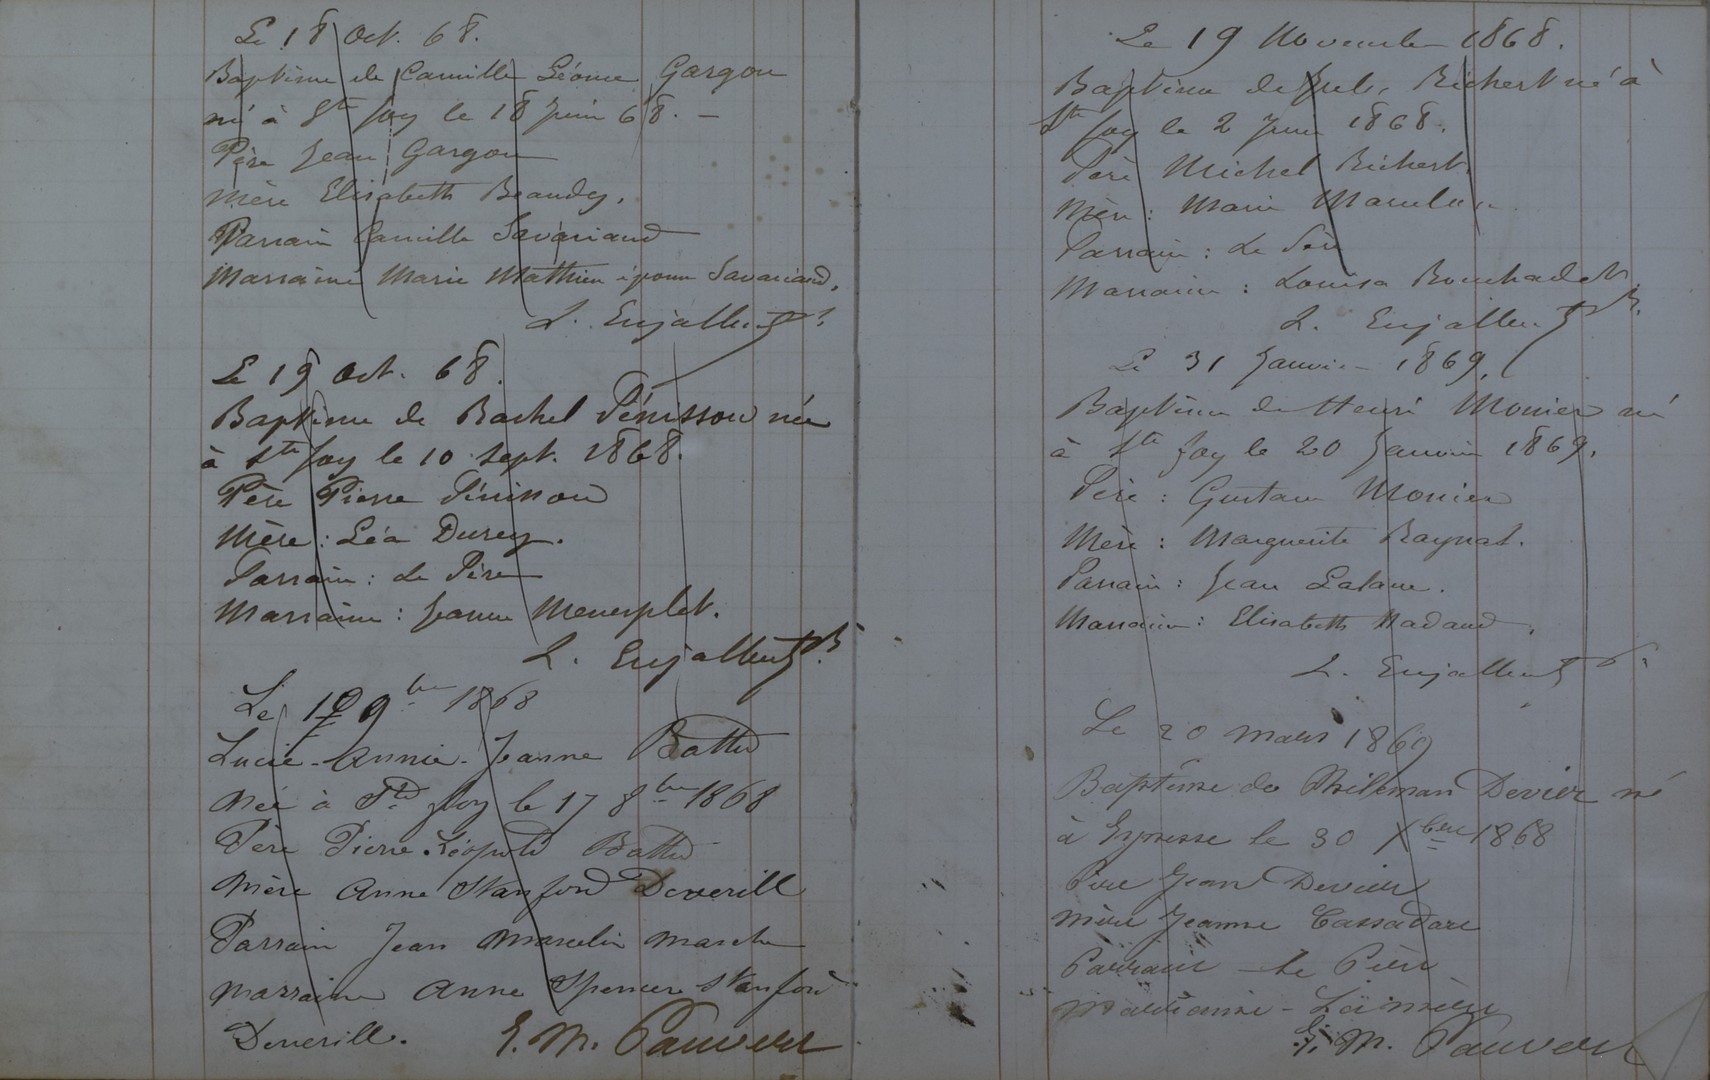 Le 18 Oct. 68.
Baptême de Camille Léonce Gargou
né à Ste foy le 18 Juin 68. –
Père Jean Gargou
Mère Elisabeth Beaudy.
Parrain Camille Savariaud
Marraine Marie Mathieu épouse Savariaud.
L. Enjalbert
Le 19 Oct. 68.
Baptême de Rachel Pénisson née
à Ste foy le 10 Sept. 1868.
Père Pierre Pénisson
Mère : Léa Durey.
Parrain : Le Père
Marraine : Jeanne Menesplet.
L. Enjalbert
Le 9bre 1868
Lucie-Annie-Jeanne Battu
Née à Ste foy le 17 8bre 1868
Père Pierre Léopold Battu
Mère Anne Stanford Deverill
Parrain Jean Marcelin
Marraine Anne Spencer Stanford
Deverill. E. M. Pauvert
Le 19 Novembre 1868.
Baptême de Richert né à
Ste foy le 2 Juin 1868.
Père Michel Richert.
Mère : Marie
Parrain : Le Père
Marraine : Louisa Bouchadet
L. Enjalbert
Le 31 Janvier 1869.
Baptême de Henri Monier né
à Ste foy le 20 Janvier 1869.
Père : Gustave Monier
Mère : Marguerite Raynat.
Parrain : Jean Latane.
Marraine : Elisabeth Nadaud.
L. Enjalbert
Le 20 Mars 1869
Baptême de Devier né
à Eynesse le 30 Xbre 1868
Père Jean Devier
Mère Jeanne Cassadare
Parrain – Le Père
Marraine – La mère
E. M. Pauvert